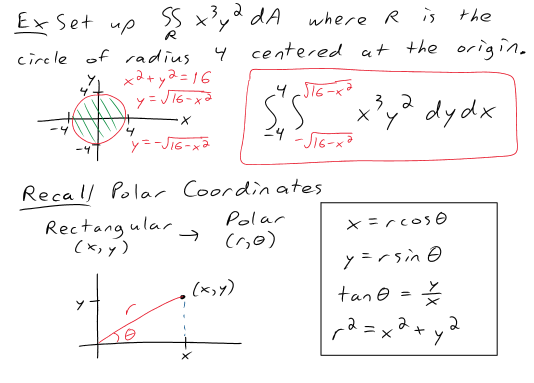 Ex Set up ∬_R x³y² dA where R is the
circle of radius 4 centered at the origin.
y
4
-4
4
x
-4
x² + y² = 16
y = √(16-x²)
y = -√(16-x²)
∫_{-4}^{4} ∫_{-√(16-x²)}^{√(16-x²)} x³y² dy dx
Recall Polar Coordinates
Rectangular → Polar
(x,y) (r,θ)
y
r
θ
(x,y)
x
x = r cos θ
y = r sin θ
tan θ = y/x
r² = x² + y²